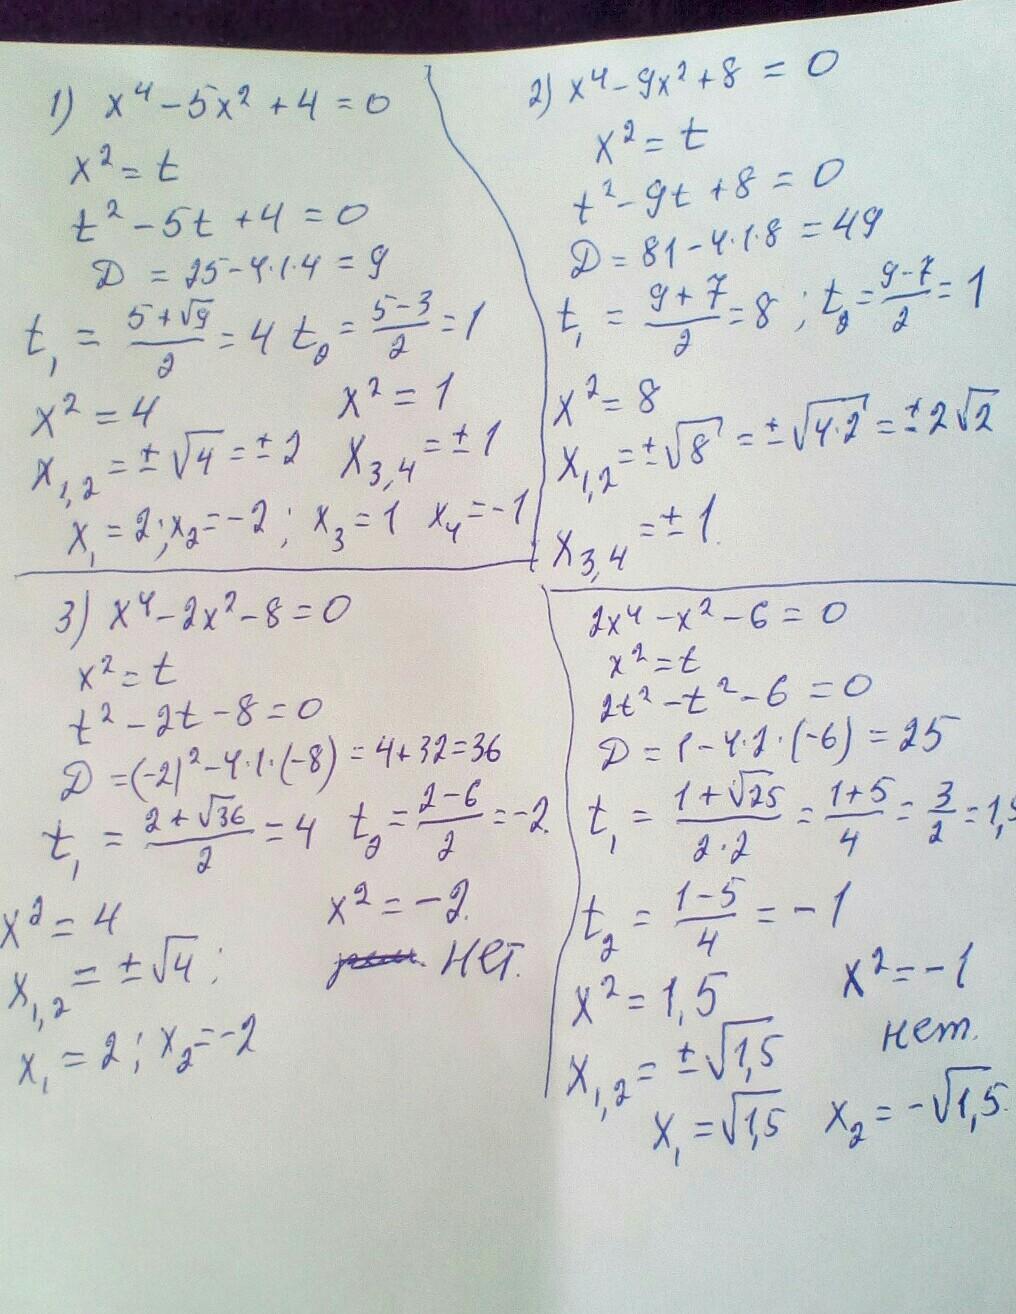 1) x⁴ - 5x² + 4 = 0
x² = t
t² - 5t + 4 = 0
D = 25 - 4·1·4 = 9
t₁ = (5+√9)/2 = 4 t₂ = (5-3)/2 = 1
x² = 4 x² = 1
x₁,₂ = ±√4 = ±2 x₃,₄ = ±1
x₁ = 2; x₂ = -2; x₃ = 1 x₄ = -1
2) x⁴ - 9x² + 8 = 0
x² = t
t² - 9t + 8 = 0
D = 81 - 4·1·8 = 49
t₁ = (9+7)/2 = 8; t₂ = (9-7)/2 = 1
x² = 8
x₁,₂ = ±√8 = ±√4·2 = ±2√2
x₃,₄ = ±1.
3) x⁴ - 2x² - 8 = 0
x² = t
t² - 2t - 8 = 0
D = (-2)² - 4·1·(-8) = 4 + 32 = 36
t₁ = (2+√36)/2 = 4 t₂ = (2-6)/2 = -2.
x² = 4 x² = -2.
x₁,₂ = ±√4; нет.
x₁ = 2; x₂ = -2
2x⁴ - x² - 6 = 0
x² = t
2t² - t² - 6 = 0
D = 1 - 4·2·(-6) = 25
t₁ = (1+√25)/(2·2) = (1+5)/4 = 3/2 = 1,5
t₂ = (1-5)/4 = -1
x² = 1,5 x² = -1
x₁,₂ = ±√1,5 нет.
x₁ = √1,5 x₂ = -√1,5.